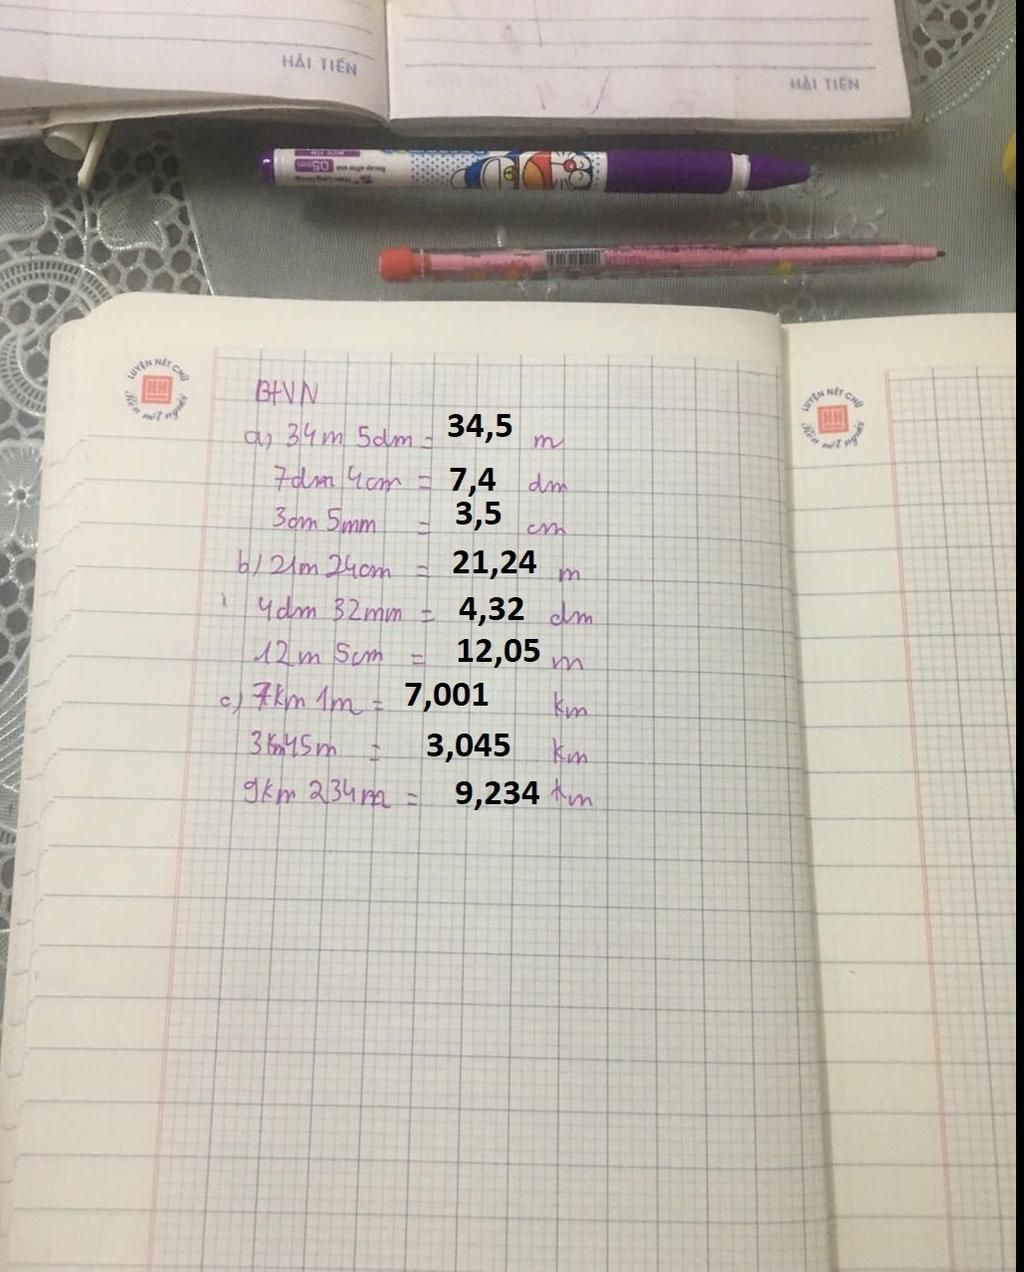 HẢI TIẾN
HẢI TIẾN
0.5mm
LUYỆN NÉT CHỮ
HH
Rèn nết người
LUYỆN NÉT CHỮ
HH
Rèn nết người
BTVN
a) 34m 5dm = 34,5 m
7dm 4cm = 7,4 dm
3cm 5mm = 3,5 cm
b) 21m 24cm = 21,24 m
4dm 32mm = 4,32 dm
12m 5cm = 12,05 m
c) 7km 1m = 7,001 km
3km45m = 3,045 km
9km 234m = 9,234 km